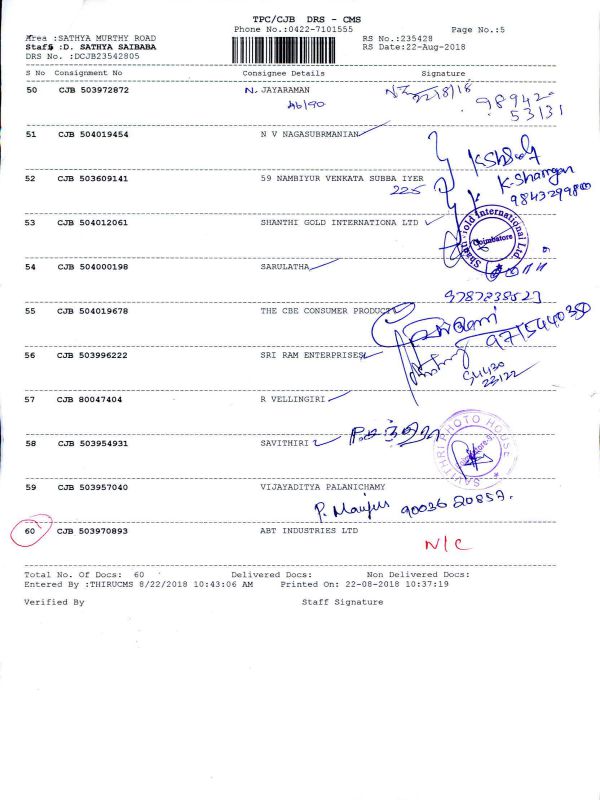 TPC/CJB DRS - CMS
Phone No.:0422-7101555 Page No.:5
Area :SATHYA MURTHY ROAD RS No.:235428
Staff :D. SATHYA SAIBABA RS Date:22-Aug-2018
DRS No. :DCJB23542805
S No Consignment No Consignee Details Signature
50 CJB 503972872 N. JAYARAMAN 22/8/18
98942-
53131
51 CJB 504019454 N V NAGASUBRMANIAN
52 CJB 503609141 59 NAMBIYUR VENKATA SUBBA IYER
225 K-Shangan
53 CJB 504012061 SHANTHI GOLD INTERNATIONA LTD
Gold International Ltd
Coimbatore
54 CJB 504000198 SARULATHA
9787238523
55 CJB 504019678 THE CBE CONSUMER PRODUCT
56 CJB 503996222 SRI RAM ENTERPRISES
57 CJB 80047404 R VELLINGIRI
58 CJB 503954931 SAVITHIRI
SAVITHRI PHOTO HOUSE
59 CJB 503957040 VIJAYADITYA PALANICHAMY
90036 20857.
60 CJB 503970893 ABT INDUSTRIES LTD
N/C
Total No. Of Docs: 60 Delivered Docs: Non Delivered Docs:
Entered By :THIRUCMS 8/22/2018 10:43:06 AM Printed On: 22-08-2018 10:37:19
Verified By Staff Signature